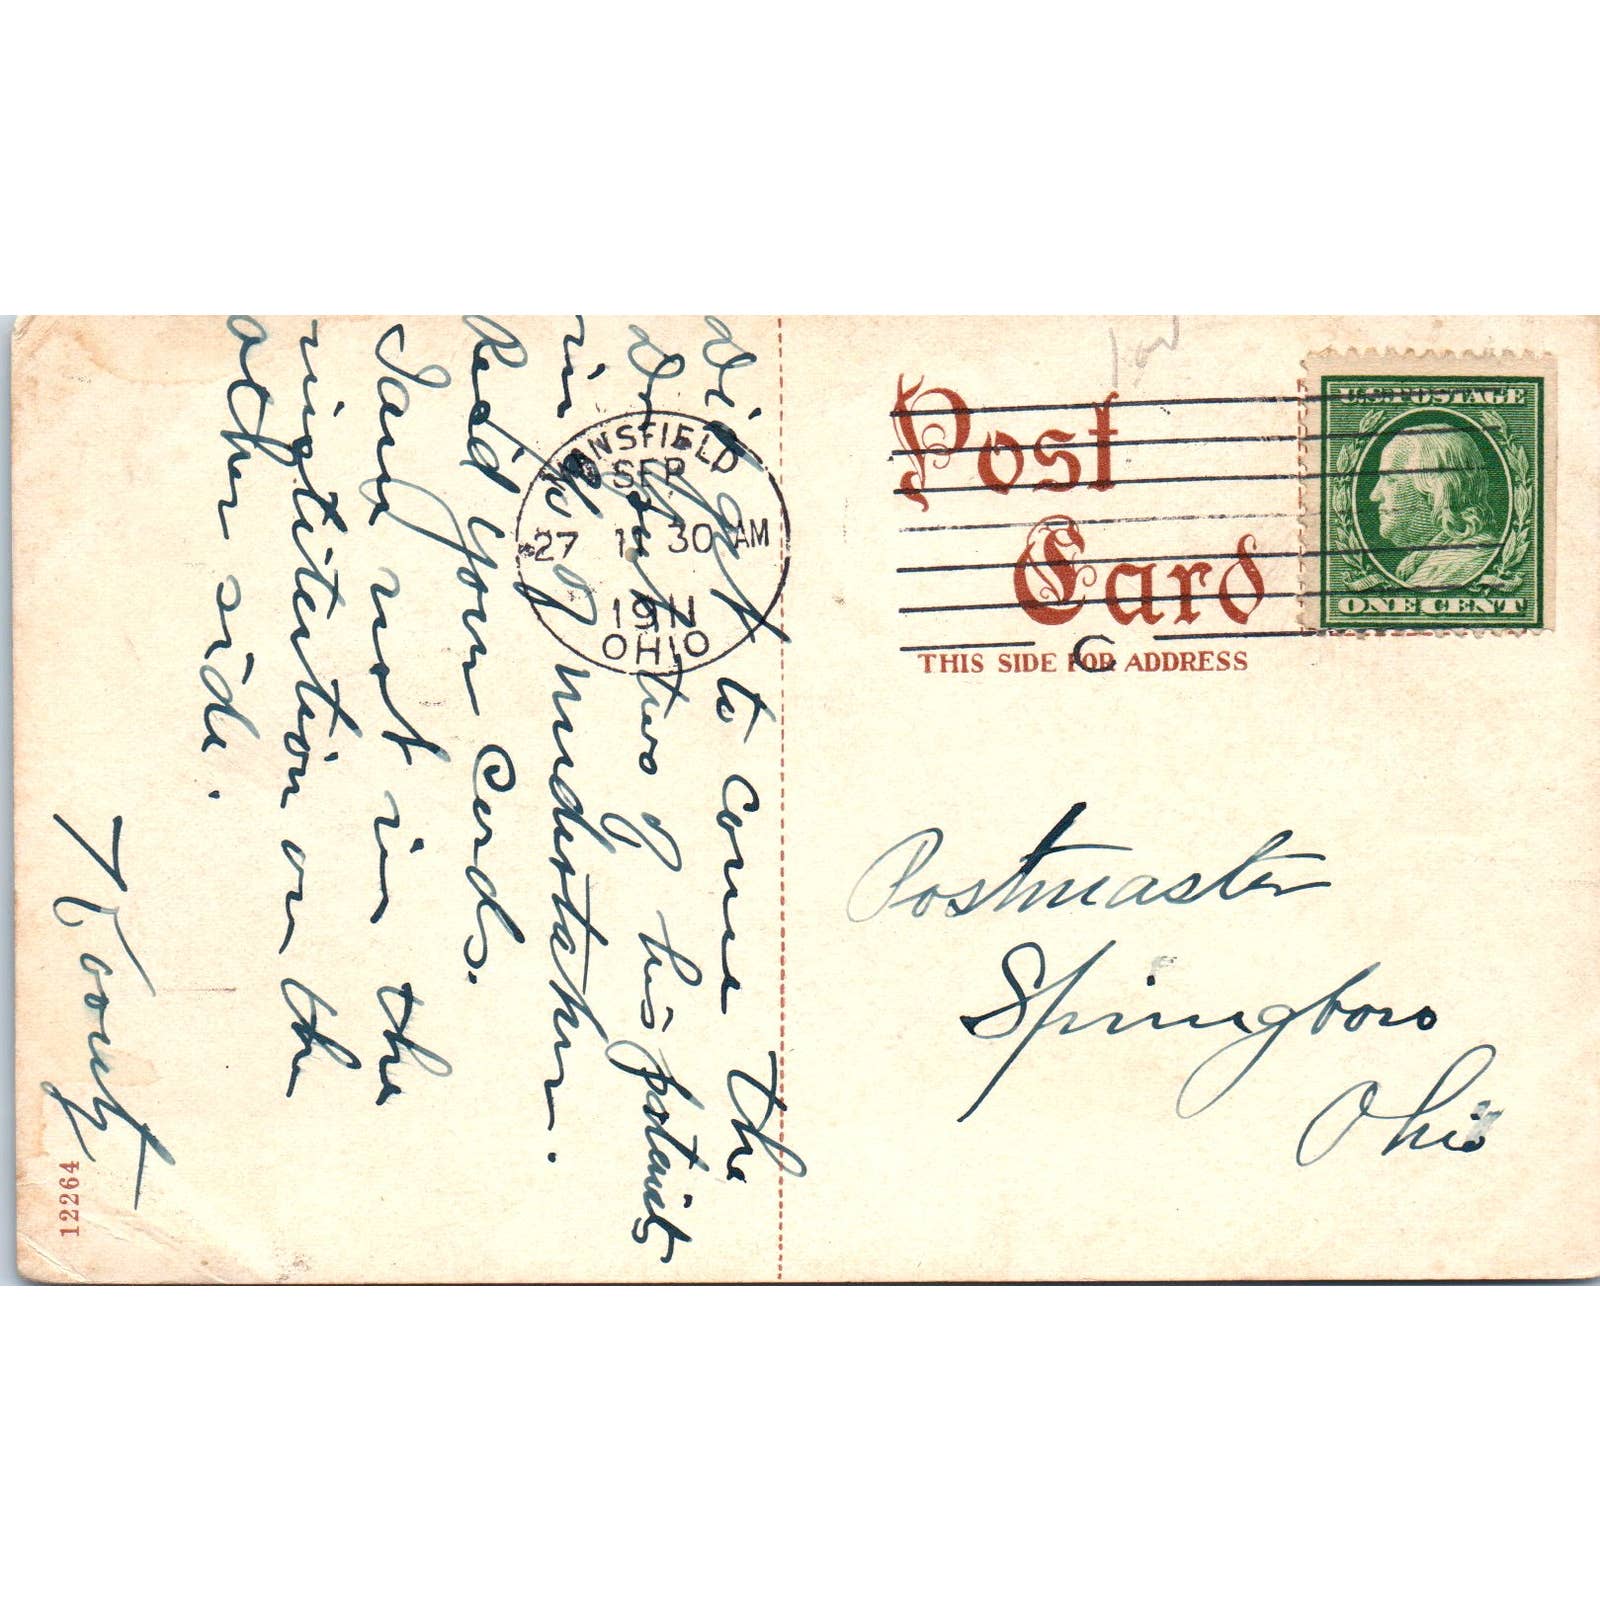 Post
Card
THIS SIDE FOR ADDRESS
U.S. POSTAGE
ONE CENT
MANSFIELD
SEP
27 11 30 AM
1911
OHIO
C
Postmaster
Springboro
Ohio
to come the
Dr. two of his patients
in of undertaker.
Rec'd your Cards.
I am not in the
institution on the
other side.
Koontz
12264